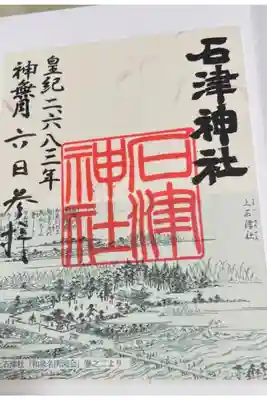 石津神社
皇紀二六八三年
神無月六日参拝
石津
神社
上石津社
石津社「和泉名所図会」巻之二より